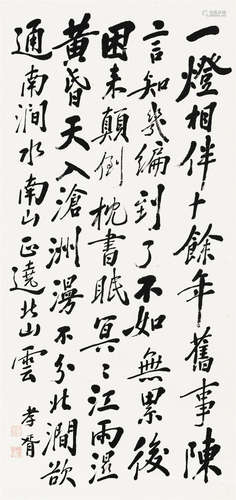 一燈相伴十餘年舊事陳
言知幾編到了不如無累後
困來顛倒枕書眠冥〻江雨濕
黃昏天入滄洲漫不分北澗欲
通南澗水南山正遶北山雲
孝胥